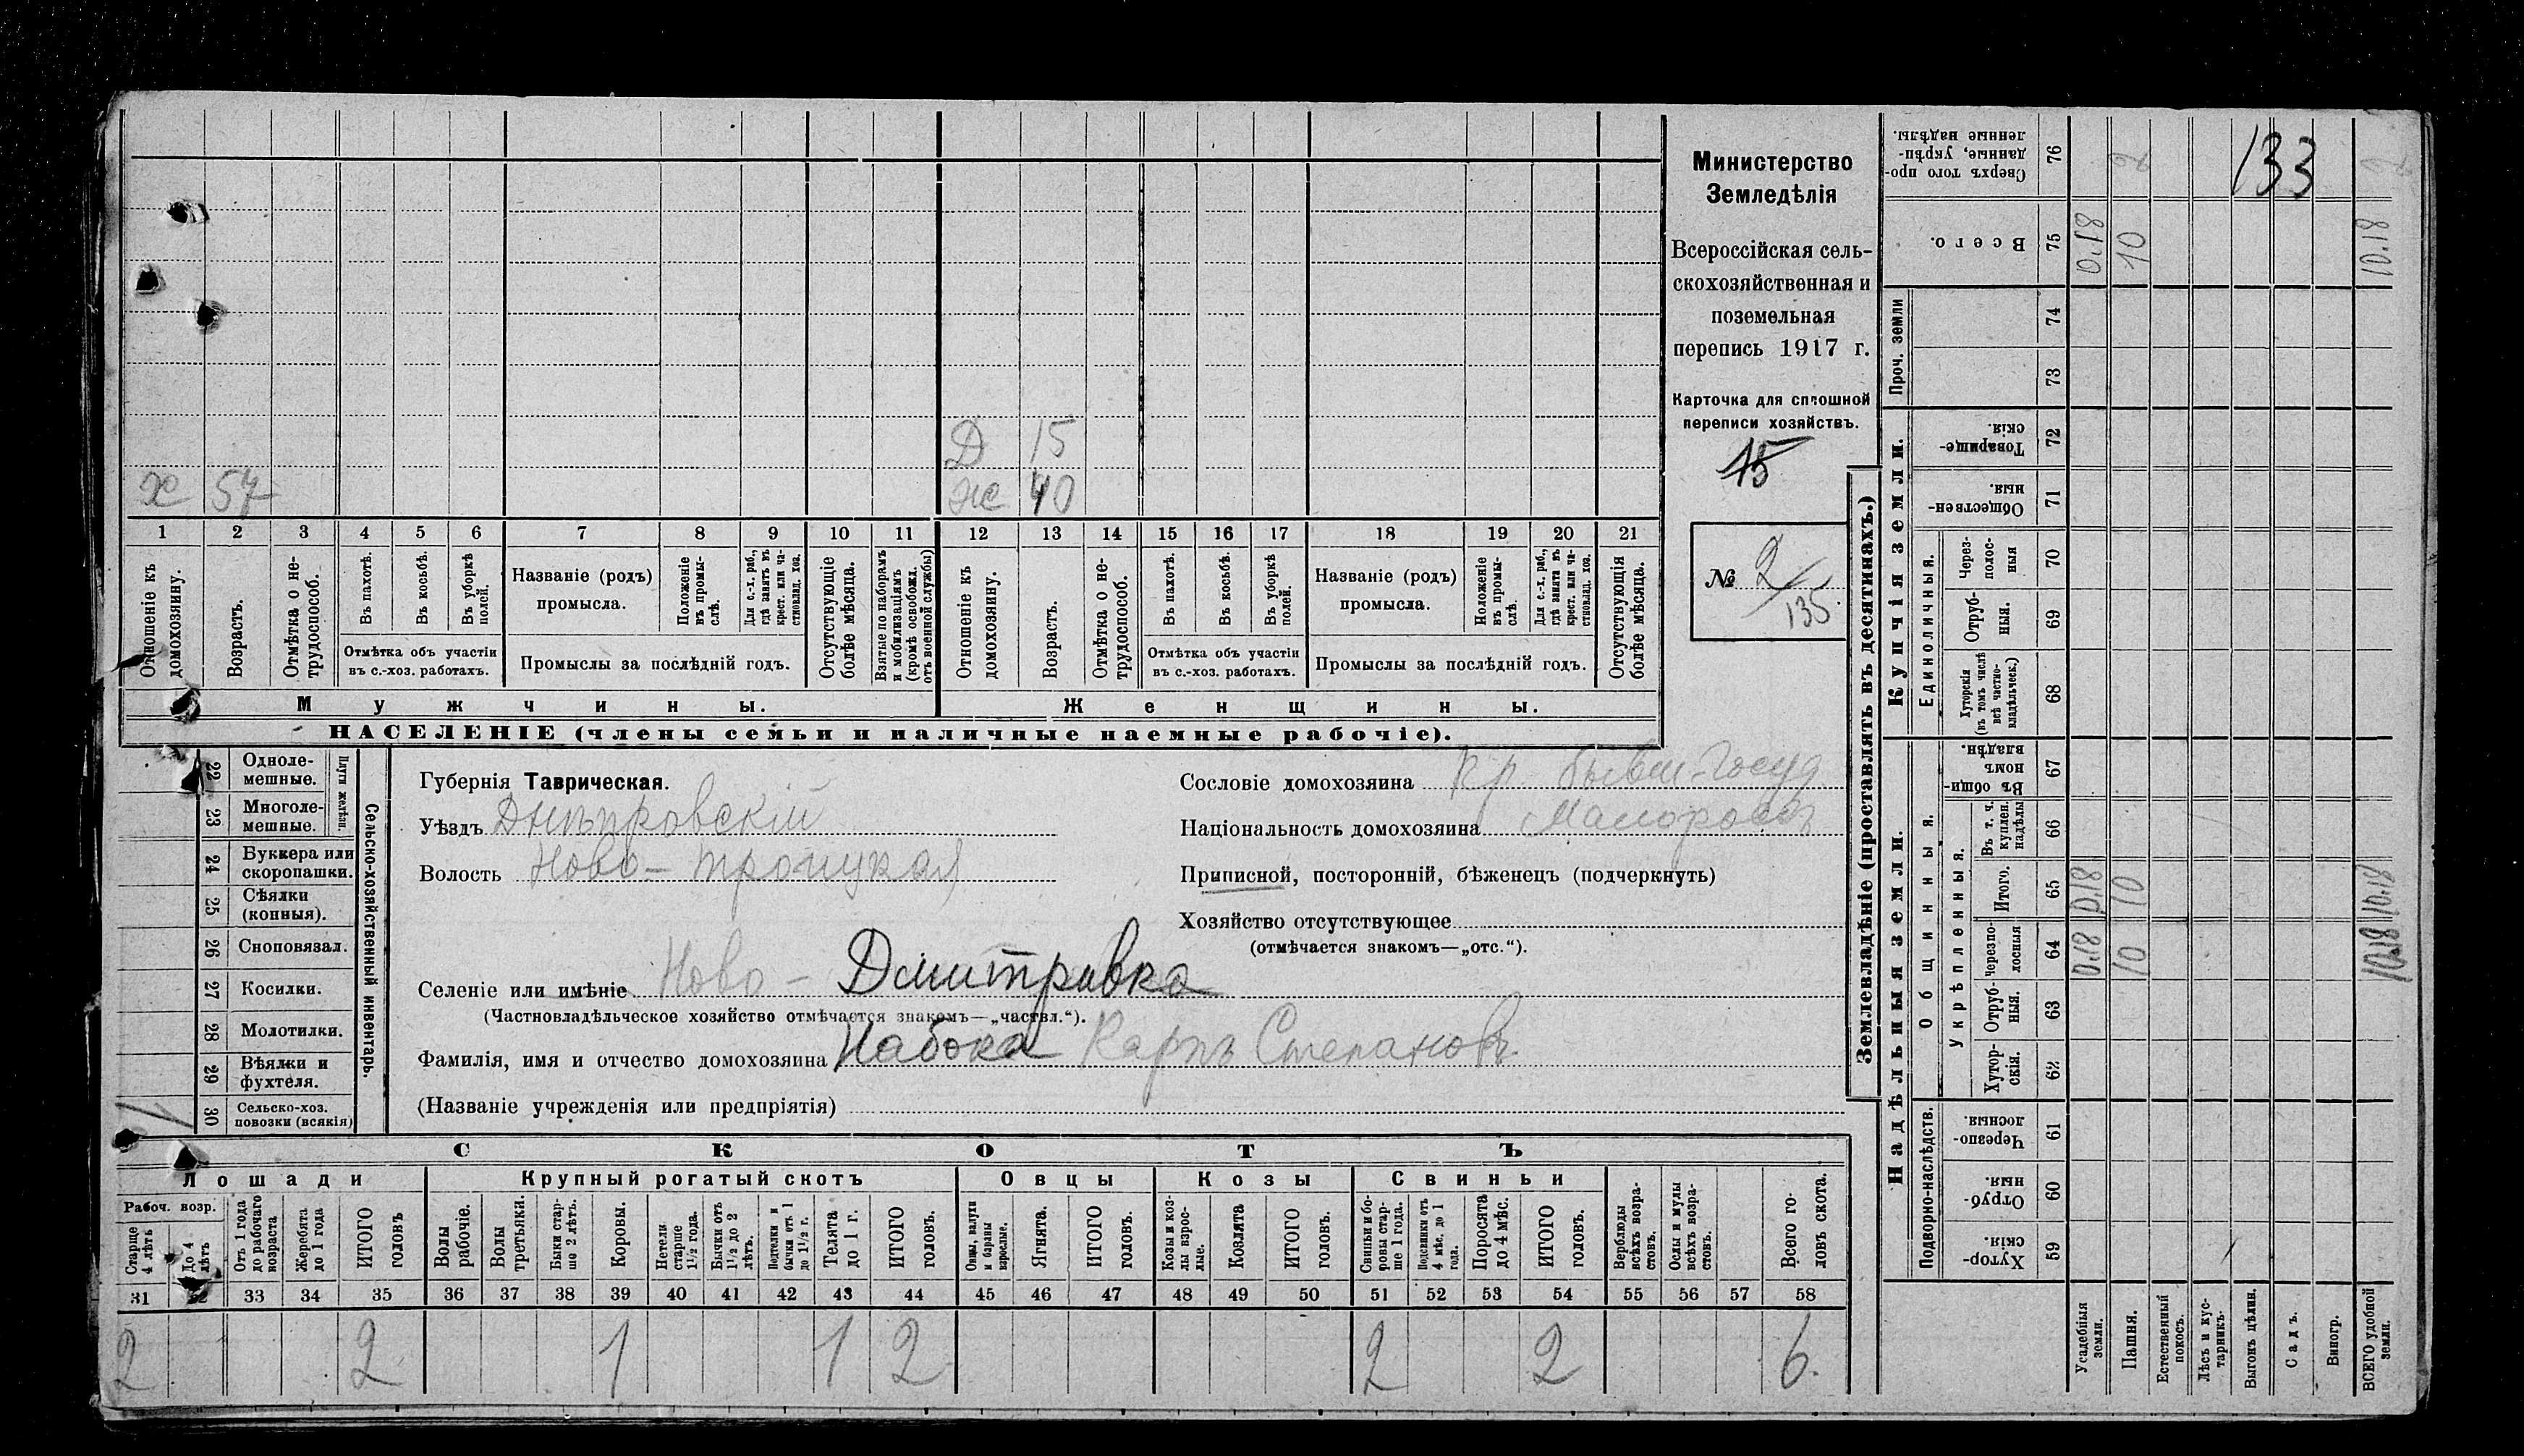 Д 15
х 57 же 40
1 2 3 4 5 6 7 8 9 10 11 12 13 14 15 16 17 18 19 20 21
Отношеніе къ домохозяину.
Возрастъ.
Отмѣтка о не-
трудоспособ.
Въ пахотѣ.
Въ косьбѣ.
Въ уборкѣ полей.
Отмѣтка объ участіи
въ с.-хоз. работахъ.
Названіе (родъ)
промысла.
Положеніе въ промы-
слѣ.
Для с.-х. раб., гдѣ занятъ въ крест. или ча-
стновлад. хоз.
Промыслы за послѣдній годъ.
Отсутствующіе болѣе мѣсяца.
Взятые по наборамъ и мобилизаціямъ (кромѣ освобожд. отъ военной службы)
Отношеніе къ домохозяину.
Возрастъ.
Отмѣтка о не-
трудоспособ.
Въ пахотѣ.
Въ косьбѣ.
Въ уборкѣ полей.
Отмѣтка объ участіи
въ с.-хоз. работахъ.
Названіе (родъ)
промысла.
Положеніе въ промы-
слѣ.
Для с.-х. раб., гдѣ занята въ крест. или ча-
стновлад. хоз.
Промыслы за послѣдній годъ.
Отсутствующія болѣе мѣсяца.
Мужчины. Женщины.
НАСЕЛЕНІЕ (члены семьи и наличные наемные рабочіе).
Министерство
Земледѣлія
Всероссійская сель-
скохозяйственная и
поземельная
перепись 1917 г.
Карточка для сплошной
переписи хозяйствъ.
15
№ 2/135
22 Одноле-
мешные.
23 Многоле-
мешные.
Плуги желѣзн.
24 Буккера или
скоропашки.
25 Сѣялки
(конныя).
26 Сноповязал.
27 Косилки.
28 Молотилки.
29 Вѣялки и
фухтеля.
30 Сельско-хоз.
повозки (всякія) 1
Сельско-хозяйственный инвентарь.
Губернія Таврическая.
Уѣздъ Днѣпровскій
Волость Ново-Троицкая
Селеніе или имѣніе Ново-Дмитровка
(Частновладѣльческое хозяйство отмѣчается знакомъ—„частвл.“).
Фамилія, имя и отчество домохозяина Набока Карпъ Степановъ
(Названіе учрежденія или предпріятія)
Сословіе домохозяина Кр. бывш. Госуд.
Національность домохозяина Малоросъ
Приписной, посторонній, бѣженецъ (подчеркнуть)
Хозяйство отсутствующее
(отмѣчается знакомъ—„отс.“).
СКОТЪ
Лошади Крупный рогатый скотъ Овцы Козы Свиньи
Рабоч. возр.
Старше 4 лѣтъ
До 4 лѣтъ
Отъ 1 года до рабочаго возраста
Жеребята до 1 года
ИТОГО головъ
Волы рабочіе.
Волы третьяки.
Быки стар-
ше 2 лѣтъ.
Коровы.
Нетели старше 1½ года.
Бычки отъ 1½ до 2 лѣтъ.
Подтелки и бычки отъ 1 до 1½ г.
Телята до 1 г.
ИТОГО головъ.
Овцы, валухи и бараны взрослые.
Ягнята.
ИТОГО головъ.
Козы и коз-
лы взрос-
лые.
Козлята
ИТОГО головъ.
Свиньи и бо-
ровы стар-
ше 1 года.
Подсвинки отъ 4 мѣс. до 1 года.
Поросята до 4 мѣс.
ИТОГО головъ.
Верблюды всѣхъ возра-
стовъ.
Ослы и мулы всѣхъ возра-
стовъ.
Всего го-
ловъ скота.
31 32 33 34 35 36 37 38 39 40 41 42 43 44 45 46 47 48 49 50 51 52 53 54 55 56 57 58
2 2 1 1 2 2 2 6.
Землевладѣніе (проставлять въ десятинахъ.)
133
Сверхъ того про-
данные, укрѣп-
ленные надѣлы. 76
Всего. 75 0.18 10 10.18
Проч. земли 74 73
Купчія земли.
Товарище-
скія. 72
Обществен-
ныя. 71
Единоличныя.
Через-
полос-
ныя 70
Отруб-
ныя. 69
Хуторскія (въ томъ числѣ всѣ частно-
владѣльческ.) 68
Надѣльныя земли.
Общинныя.
Въ общин-
номъ владѣн. 67
Укрѣпленныя.
Въ т. ч. куплен. надѣлы 66
Итого. 65 0.18 10 10.18
Черезпо-
лосныя 64 0.18 10 10.18
Отруб-
ныя. 63
Хутор-
скія. 62
Подворно-наслѣдств.
Черезпо-
лосныя 61
Отруб-
ныя. 60
Хутор-
скія. 59
Усадебныя земли.
Пашня.
Естественный покосъ.
Лѣсъ и кус-
тарникъ.
Выгонъ цѣлин.
Садъ.
Виногр.
ВСЕГО удобной земли.